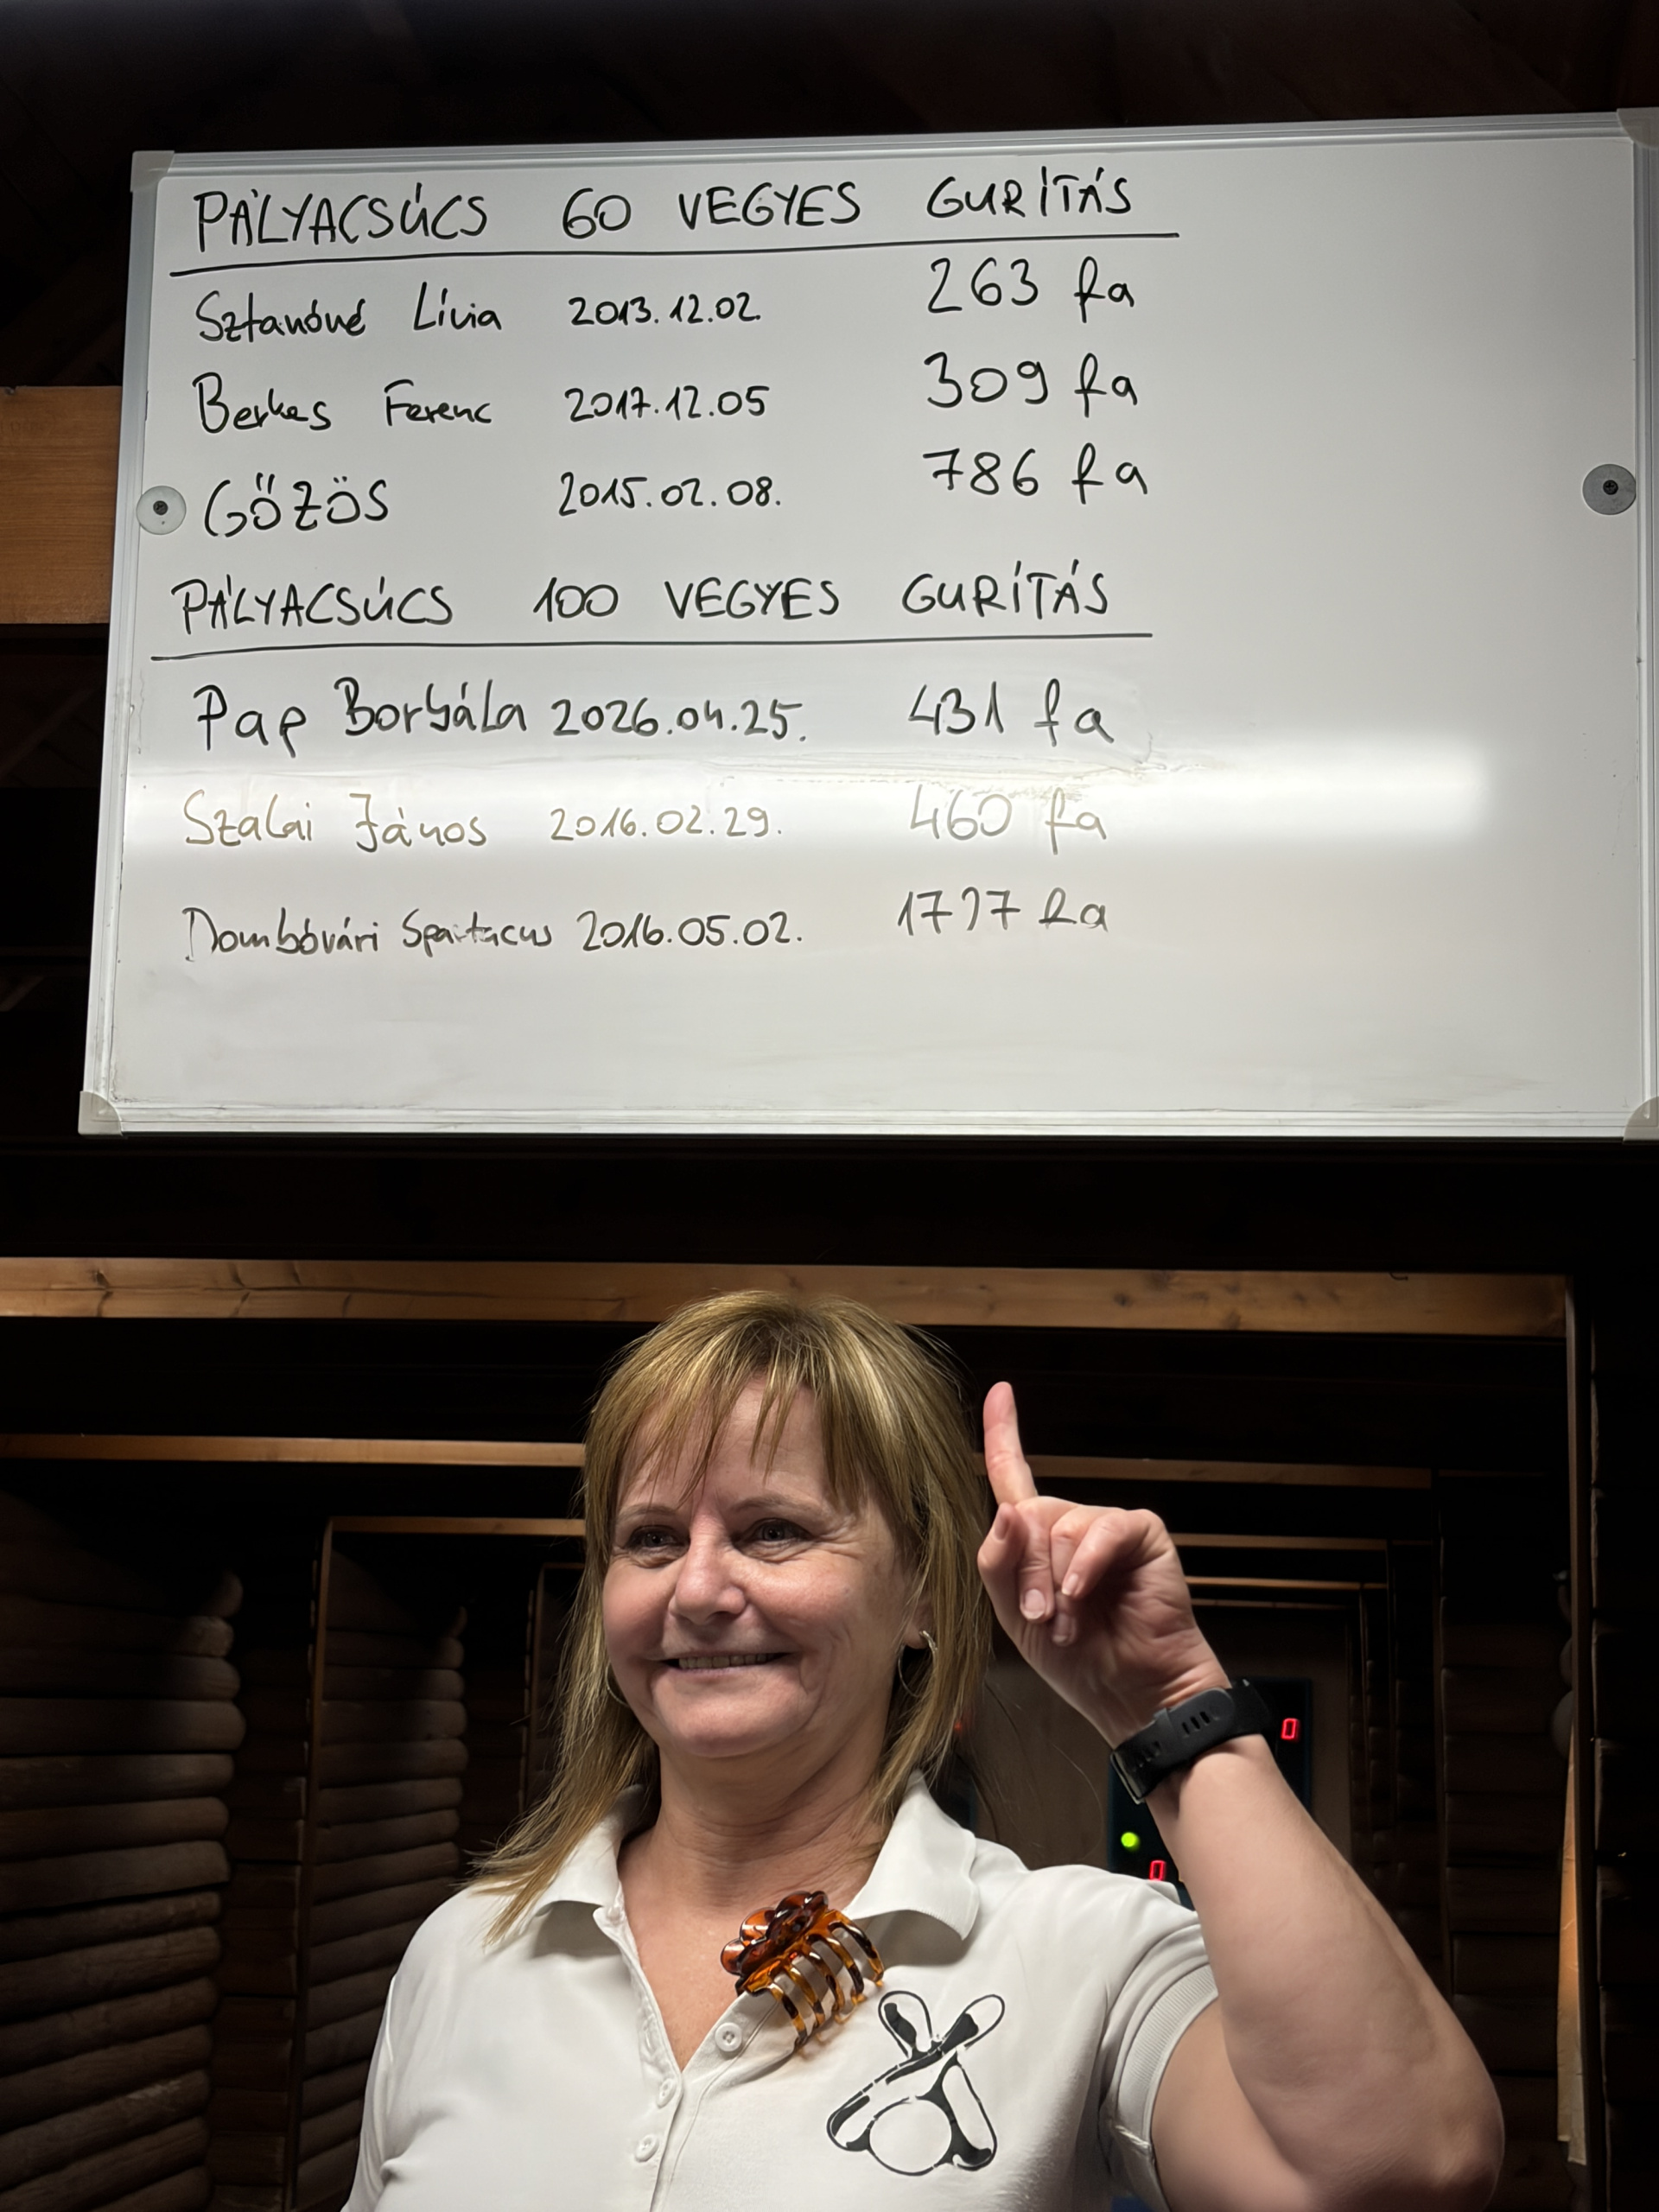 PÁLYACSÚCS 60 VEGYES GURÍTÁS
Sztanóné Lívia 2013.12.02. 263 fa
Berkes Ferenc 2017.12.05 309 fa
GŐZÖS 2015.02.08. 786 fa
PÁLYACSÚCS 100 VEGYES GURÍTÁS
Pap Borbála 2026.04.25. 431 fa
Szalai János 2016.02.29. 460 fa
Dombóvári Spartacus 2016.05.02. fa
0
0